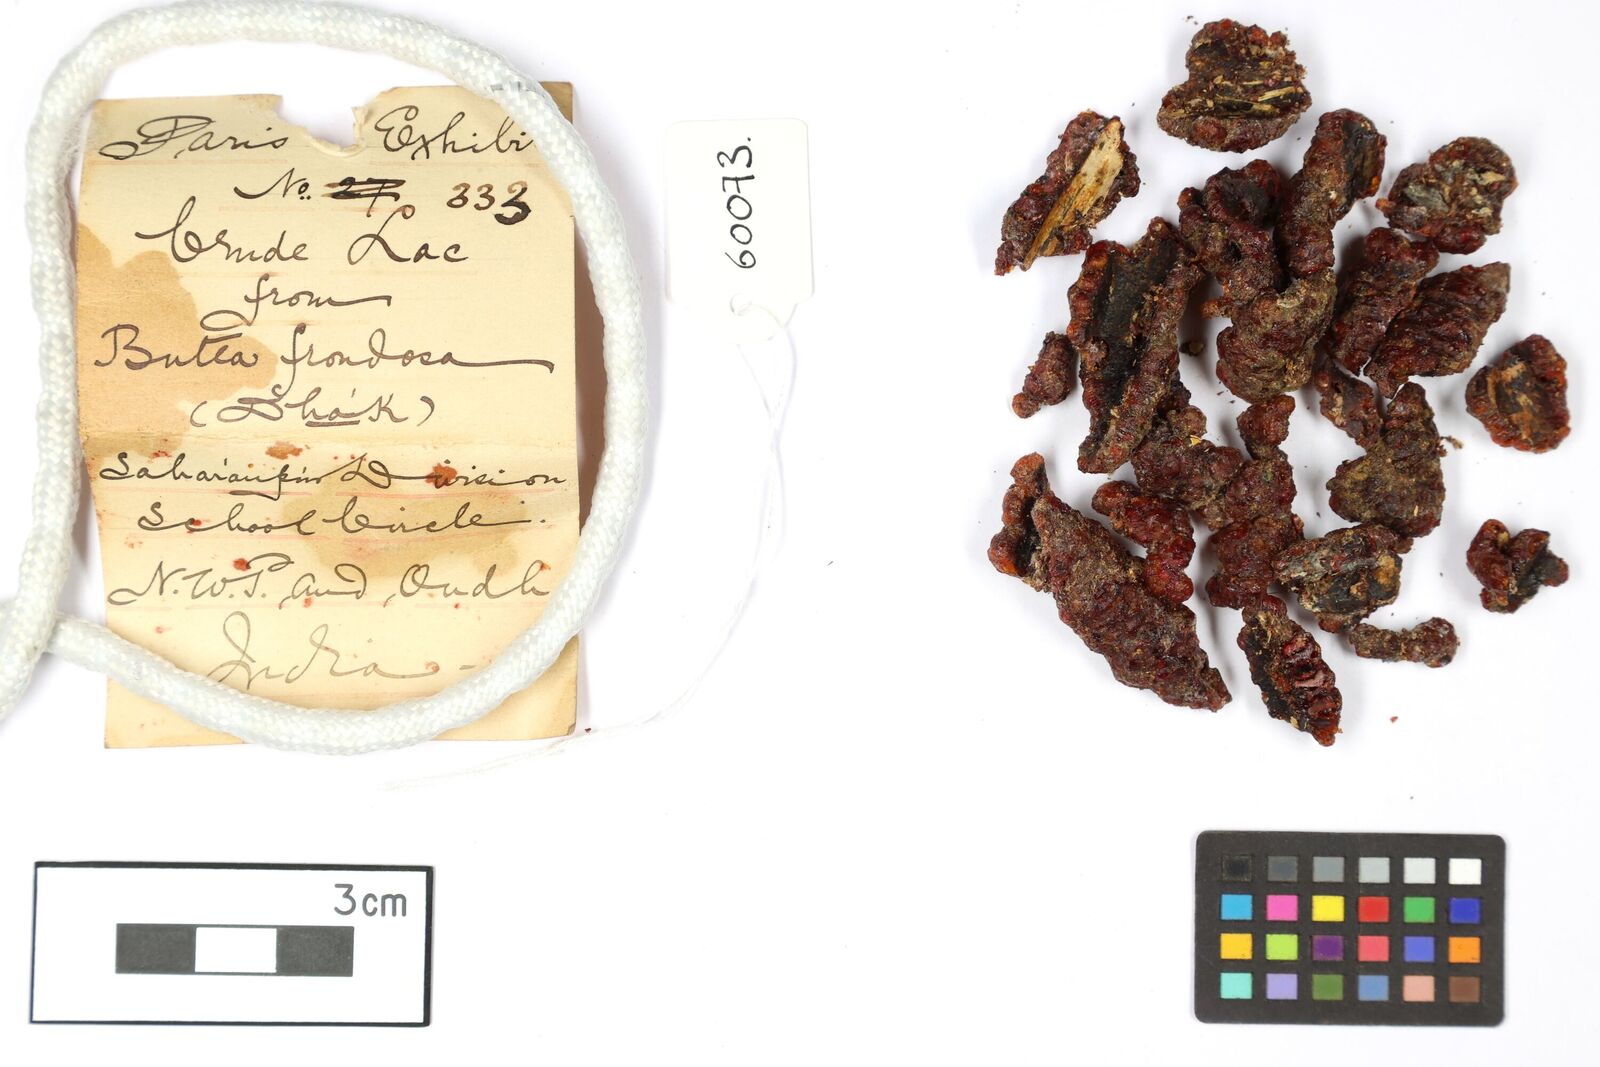 Paris Exhibi
No. 27 333
Crude Lac
from
Butea frondosa
(Dhák)
Saharanpúr Division
School Circle.
N.W.P. and Oudh
India
60073.
3cm